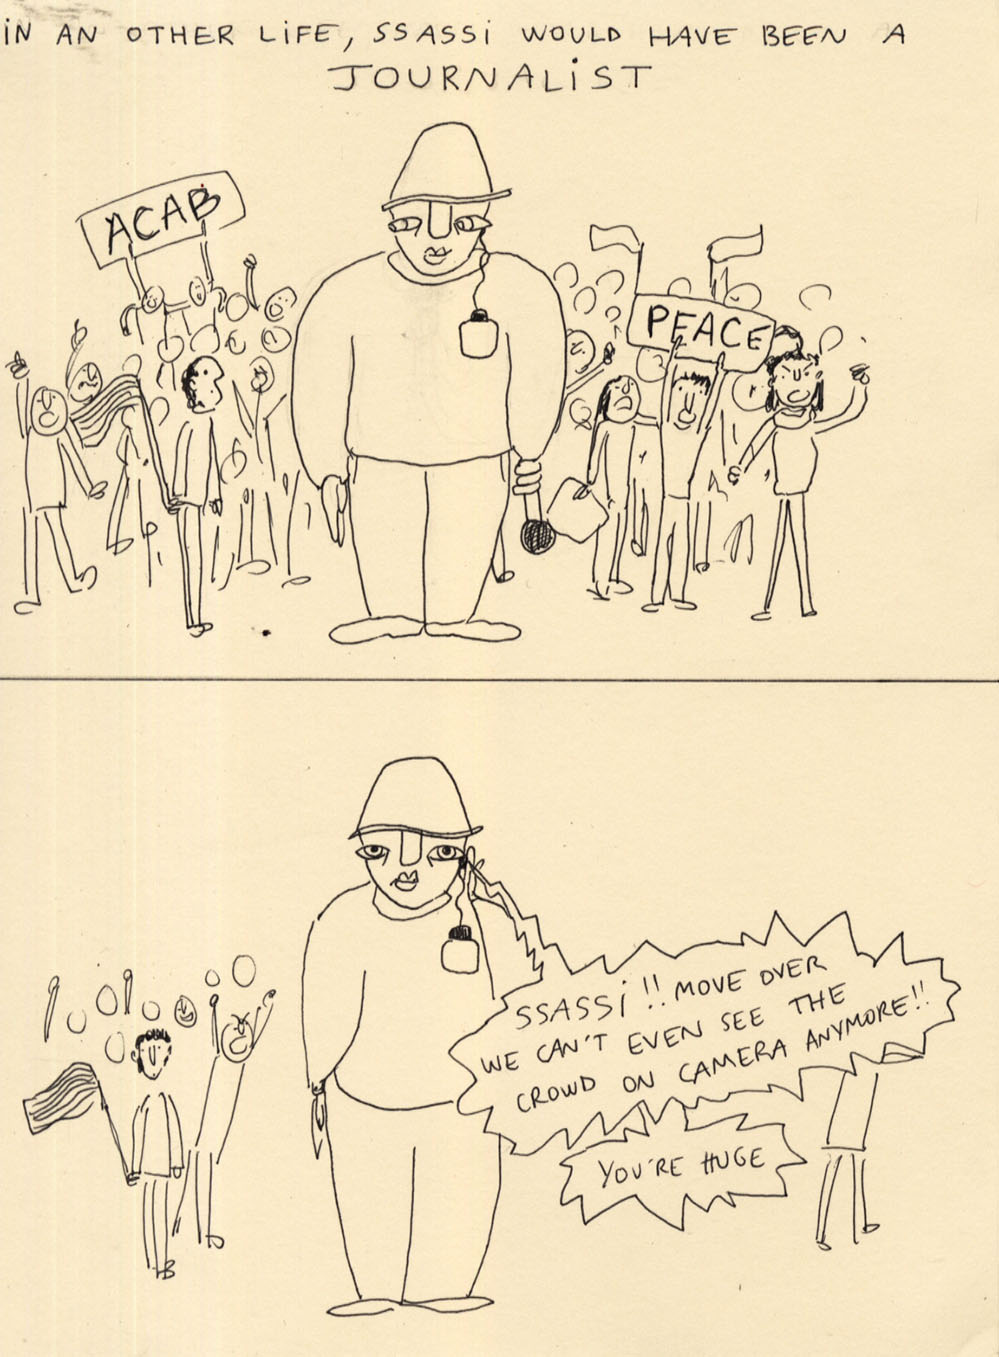 iN AN OTHER LiFE, SSASSi WOULD HAVE BEEN A
JOURNALiST
ACAB
PEACE
SSASSi!! MOVE OVER
WE CAN'T EVEN SEE THE
CROWD ON CAMERA ANYMORE!!
YOU'RE HUGE